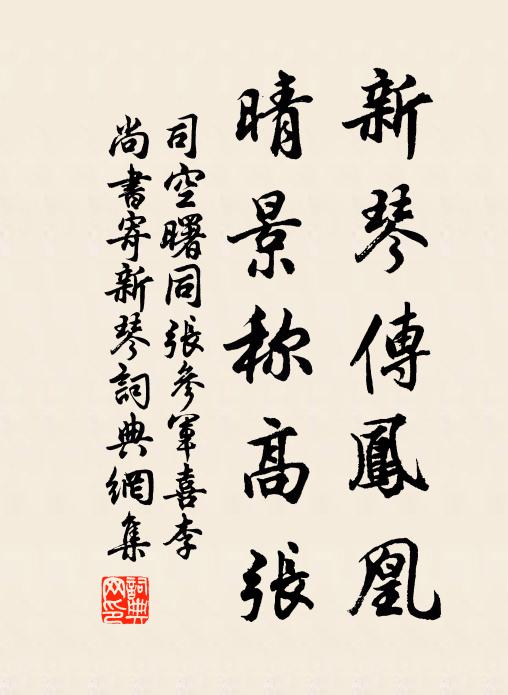 新琴傳鳳凰
晴景称高張
司空曙同張參軍喜李
尚書寄新琴詞典網集